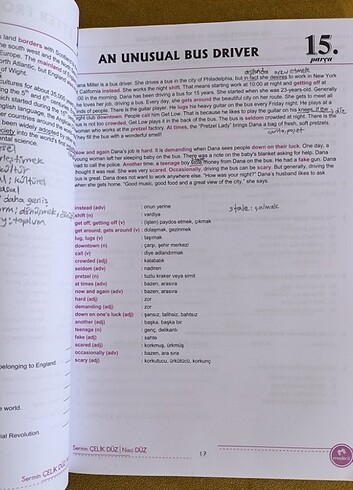 AN UNUSUAL BUS DRIVER
15.
parça
Dana Miller is a bus driver. She drives a bus in the city of Philadelphia, but in fact she desires to work in New
California instead. She works the night shift. That means starting work at 10:00 at night and getting off at
in the morning. Dana has been driving a bus for 15 years. She started when she was 23-years-old. Generally
she loves her job, driving a bus. Every day, she gets around the beautiful city on her route. She gets to meet all
kinds of people. There is the guitar player. He lugs his heavy guitar on the bus every Friday night. He plays at a
night club downtown. People call him Get Low. That is because he likes to play the guitar on his knees, if the
bus is not too crowded. Get Low plays it in the back of the bus. The bus is seldom crowded at night. There is the
woman who works at the pretzel factory. At times, the "Pretzel Lady" brings Dana a bag of fresh, soft pretzels.
They fill the bus with a wonderful smell!
Now and again Dana's job is hard. It is demanding when Dana sees people down on their luck. One day, a
young woman left her sleeping baby on the bus. There was a note on the baby's blanket asking for help. Dana
had to call the police. Another time, a teenage boy stole money from Dana on the bus. He had a fake gun. Dana
thought it was real. She was very scared. Occasionally, driving the bus can be scary. But generally, driving the
bus is great. Dana does not want to work anywhere else. "How was your night?" Dana's husband likes to ask
when she gets home. "Good music, good food and a great view of the city," she says.
instead (adv) : onun yerine
shift (n) : vardiya
get off, getting off (v) : (işten) paydos etmek, çıkmak
get around, gets around (v) : dolaşmak, gezinmek
lug, lugs (v) : taşımak
downtown (n) : çarşı, şehir merkezi
call (v) : diye adlandırmak
crowded (adj) : kalabalık
seldom (adv) : nadiren
pretzel (n) : tuzlu kraker veya simit
at times (adv) : bazen, arasıra
now and again (adv) : bazen, arasıra
hard (adj) : zor
demanding (adj) : zor
down on one's luck (adj) : şansız, talihsiz, bahtsız
another (adj) : başka, başka bir
teenage (n) : genç, delikanlı
fake (adj) : sahte
scared (adj) : korkmuş, ürkmüş
occasionally (adv) : bazen, ara sıra
scary (adj) : korkutucu, ürkütücü, korkunç
stole: çalmak
Sermin ÇELİK DÜZ | Naci DÜZ
17
land borders with
The mainland of
of Wight.
belonging to England.
e world.
rial Revolution.
Sermin ÇELİK DÜZ